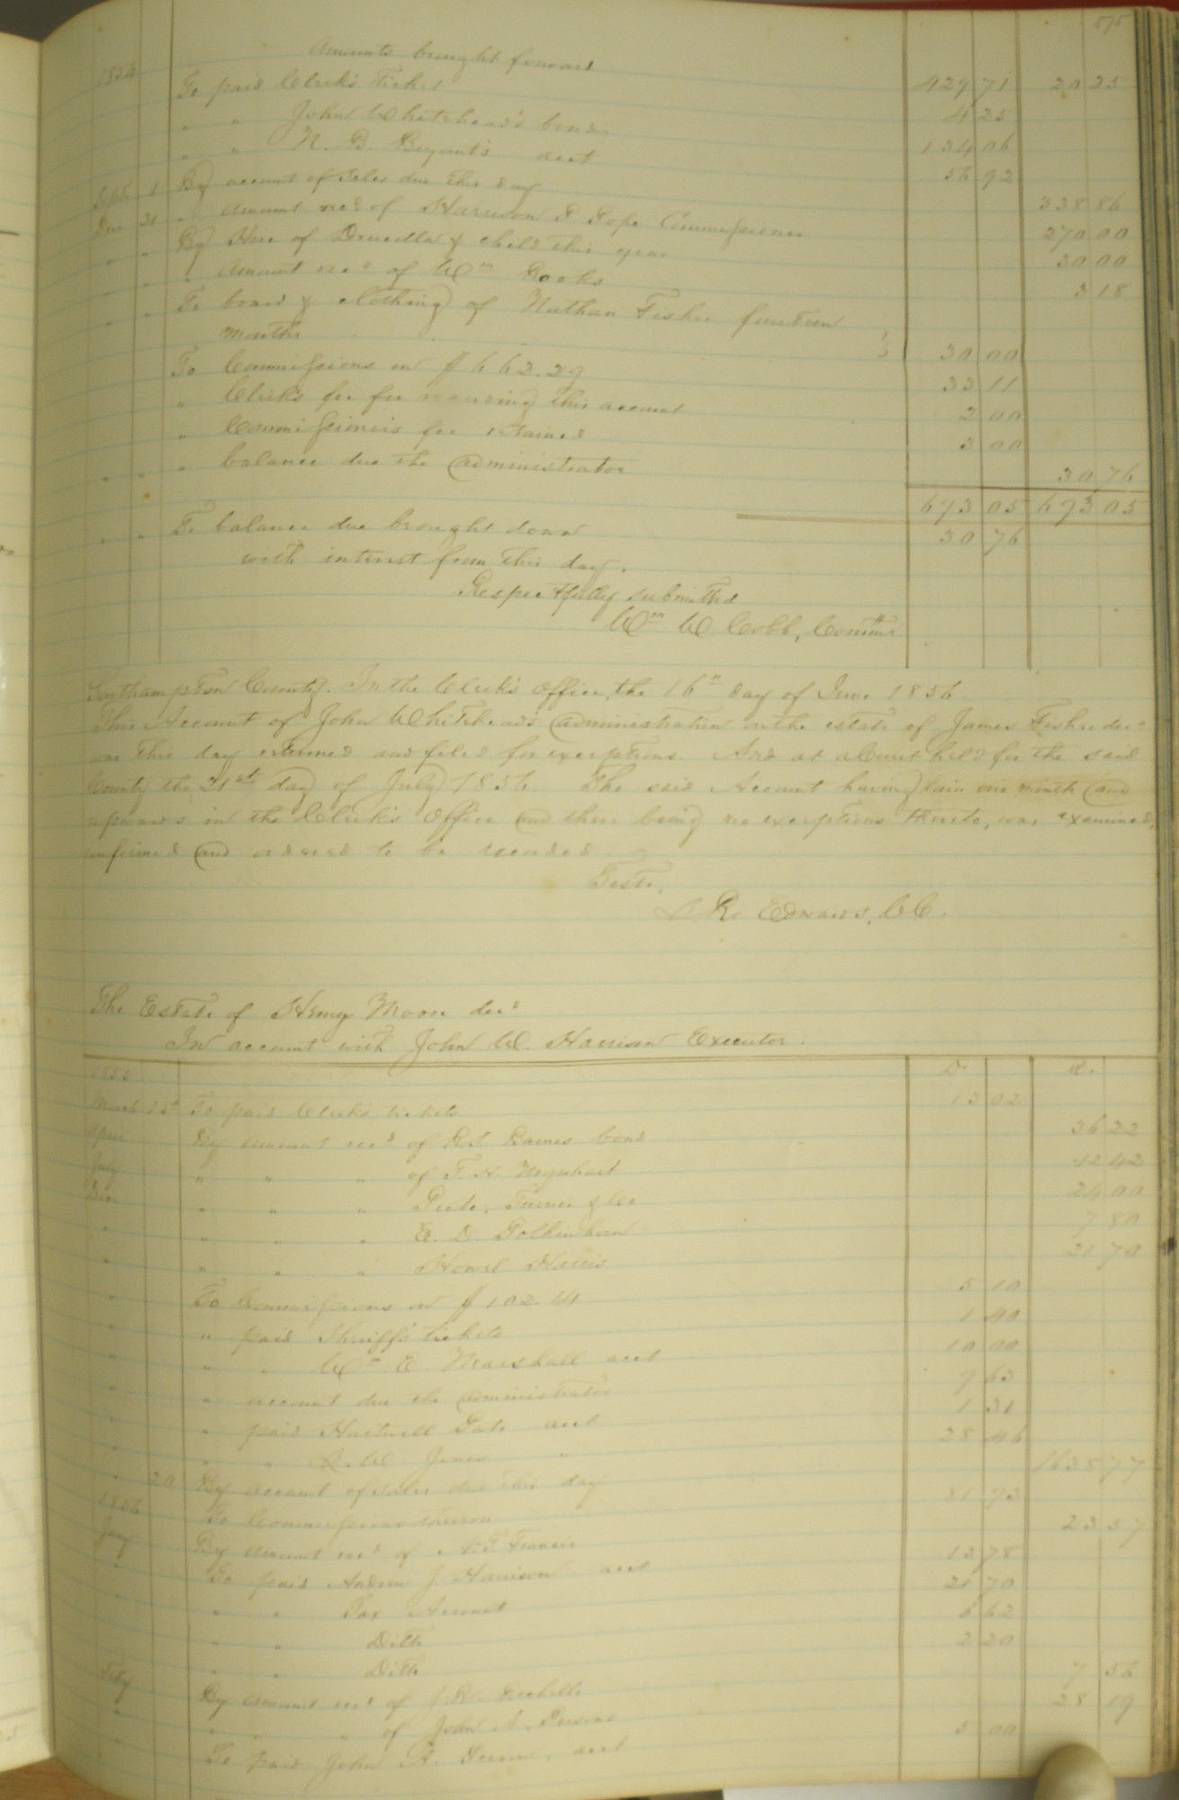 575
Amounts brought forward 429 71 20 25
To paid Clerk's Ticket 4 25
" " John Whitehead's bond 134 06
" " N. B Bryant's acct 56 92
Sept 1 By account of Sales due this day 338 86
Dec 31 " amount recd of Harrison P Pope Commissioner 270 00
" " By Hire of Drucilla & child this year 30 00
" " " Amount recd of Wm Rooks 3 18
" " To board & clothing of Nathan Fisher fourteen
months 30 00
To Commissions on $662.29 33 11
" Clerk's fee for recording this account 2 00
" Commissioner's fee retained 3 00
" " " balance due the administrator 30 76
693 05 693 05
" " To balance due brought down 30 76
with interest from this day.
Respectfully submitted
Wm W. Cobb, Commr
Southampton County. In the Clerk's Office, the 16th day of June 1856
This Account of John Whitehead's administration on the estate of James Fisher decd
was this day returned and filed for exceptions And at a Court held for the said
County the 21st day of July 1856 The said Account having lain one month and
upwards in the Clerk's Office and there being no exceptions thereto, was examined,
confirmed and ordered to be recorded
Teste,
L. R. Edwards, C.C.
The Estate of Henry Moore decd
In account with John W. Harrison Executor.
1855 D. C.
March 15 To paid Clerk's tickets 13 02
April By amount recd of R.S. Barnes bond 36 22
July " " " of T. H. Urquhart 12 42
Dec " " " Peete, Turner & Co 24 00
" " " " E. D. Polkinhorn 7 80
" " " " Howel Harris 21 70
" To Commissions on $102.14 5 10
" " paid Sheriff's tickets 1 40
" " " Wm E. Marshall acct 10 00
" " account due the administrator 9 63
" " paid Hartwell Pate acct 1 31
" " " J. W. Jones " 28 46
" 20 By account of sales due this day 1635 77
1856 To Commissions thereon 81 73
Jany By amount recd of N. T. Francis 23 57
" To paid Andrew J. Harrison acct 13 78
" " Tax Account 21 70
" " Ditto 6 62
" " Ditto 2 20
Feby By amount recd of J. R. Rochelle 7 56
" " " " of John A. Persons 28 19
To paid John R. acct 5 00